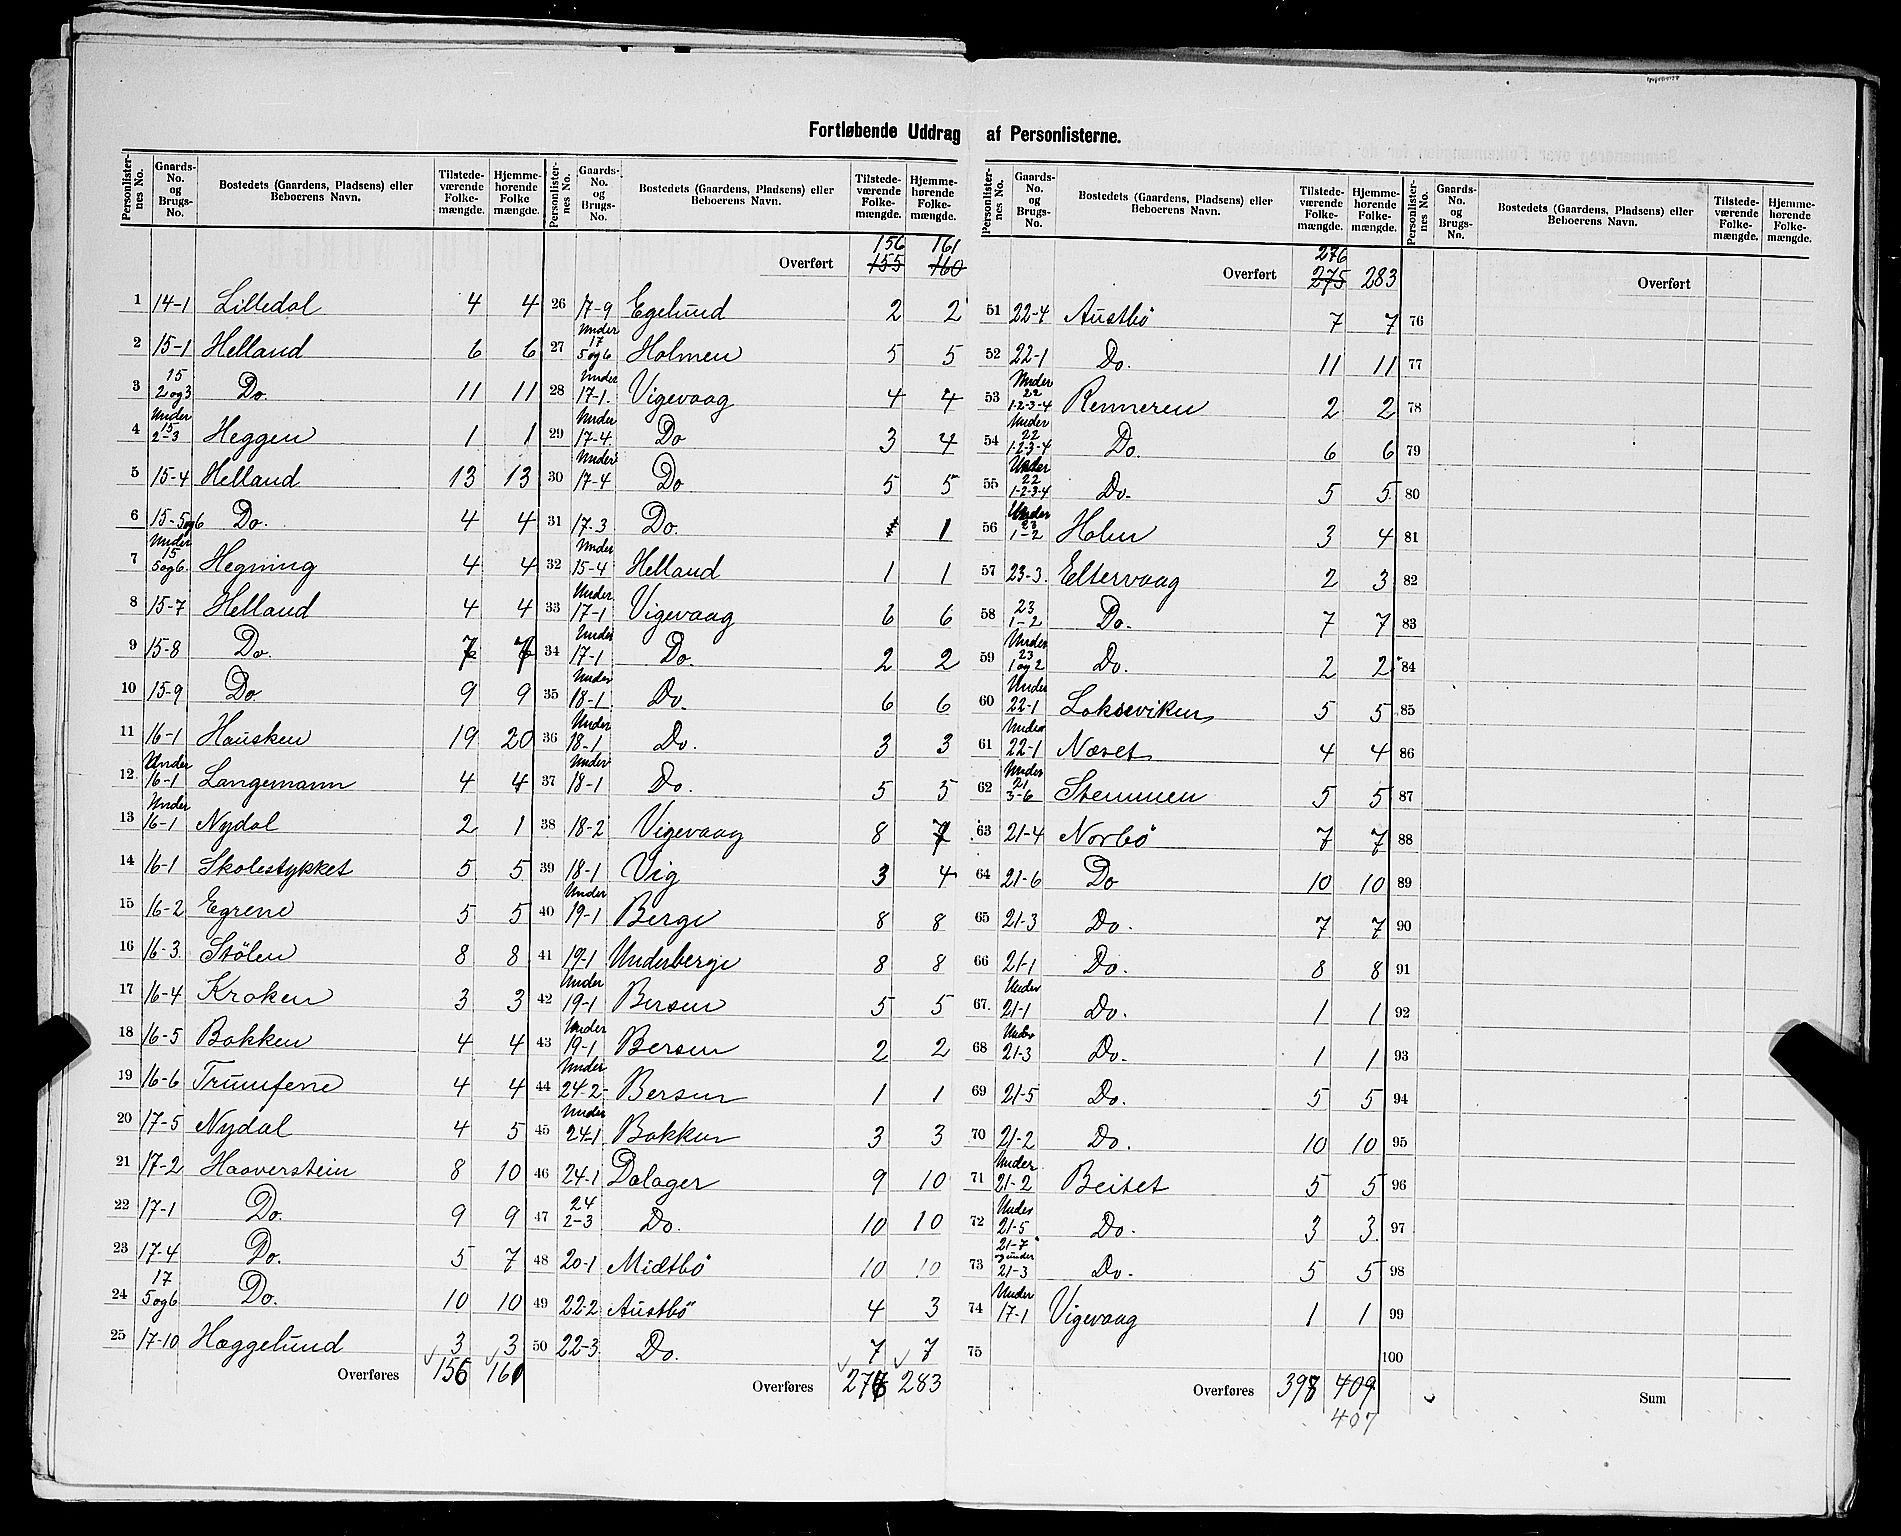 Fortløbende Uddrag af Personlisterne.
Personlister-nes No. | Gaards-No. og Brugs-No. | Bostedets (Gaardens, Pladsens) eller Beboerens Navn. | Tilstede-værende Folke-mængde. | Hjemme-hørende Folke mængde.
1 14-1 Lilledal 4 4
2 15-1 Helland 6 6
3 15 2og3 Do. 11 11
4 Under 15 2-3 Heggen 1 1
5 15-4 Helland 13 13
6 15-5og6 Do. 4 4
7 Under 15 5og6. Hegning 4 4
8 15-7 Helland 4 4
9 15-8 Do. 7 7
10 15-9 Do. 9 9
11 16-1 Hausken 19 20
12 Under 16-1 Langemann 4 4
13 Under 16-1 Nydal 2 1
14 16-1 Skolestykket 5 5
15 16-2 Egrene 5 5
16 16-3 Stölen 8 8
17 16-4 Kroken 3 3
18 16-5 Bakken 4 4
19 16-6 Trumfene 4 4
20 17-5 Nydal 4 5
21 17-2 Haaverstein 8 10
22 17-1 Do. 9 9
23 17-4 Do. 5 7
24 17 5og6 Do. 10 10
25 17-10 Hæggelund 3 3
Overføres 156 161
Personlister-nes No. | Gaards-No. og Brugs-No. | Bostedets (Gaardens, Pladsens) eller Beboerens Navn. | Tilstede-værende Folke-mængde. | Hjemme-hørende Folke-mængde.
156 161
Overført 155 160
26 17-9 Egelund 2 2
27 Under 17 5og6 Holmen 5 5
28 Under 17-1. Vigevaag 4 4
29 Under 17-4. Do 3 4
30 Under 17-4 Do 5 5
31 17-3 Do. 1
32 Under 15-4 Helland 1 1
33 Under 17-1 Vigevaag 6 6
34 Under 17-1 Do. 2 2
35 Under 18-1 Do. 6 6
36 Under 18-1 Do. 3 3
37 Under 18-1 Do. 5 5
38 18-2 Vigevaag 8 7
39 18-1 Vig 3 4
40 Under 19-1 Berge 8 8
41 19-1 Underberge 8 8
42 Under 19-1 Bersen 5 5
43 Under 19-1 Bersen 2 2
44 Under 24-2 Bersen 1 1
45 Under 24-1 Bakken 3 3
46 24-1 Dalager 9 10
47 24 2-3 Do. 10 10
48 20-1 Midtbö 10 10
49 22-2 Austbö 4 3
50 22-3 Do. 7 7
Overføres 276 283
Personlister-nes No. | Gaards-No. og Brugs-No. | Bostedets (Gaardens, Pladsens) eller Beboerens Navn. | Tilstede-værende Folke-mængde. | Hjemme-hørende Folke-mængde.
276
Overført 275 283
51 22-4 Austbö 7 7
52 22-1 Do. 11 11
53 Under 22 1-2-3-4 Renneren 2 2
54 Under 22 1-2-3-4 Do. 6 6
55 Under 22 1-2-3-4 Do. 5 5
56 Under 23 1-2 Holen 3 4
57 23-3. Eltervaag 2 3
58 23 1-2 Do. 7 7
59 Under 23 1og2 Do. 2 2
60 Under 22-1 Lokseviken 5 5
61 Under 22-1 Næset 4 4
62 Under 21 3-6 Stemmen 5 5
63 21-4 Norbö 7 7
64 21-6 Do 10 10
65 21-3 Do. 7 7
66 21-1 Do. 8 8
67. Under 21-1 Do. 1 1
68 Under 21-3 Do. 1 1
69 21-5 Do. 5 5
70 21-2 Do. 10 10
71 Under 21-2 Beitet 5 5
72 Under 21-5 Do. 3 3
73 21-7 og under 21-3 Do. 5 5
74 Under 17-1 Vigevaag 1 1
75
Overføres 398 409
407
Personlister-nes No. | Gaards-No. og Brugs-No. | Bostedets (Gaardens, Pladsens) eller Beboerens Navn. | Tilstede-værende Folke-mængde. | Hjemme-hørende Folke-mængde.
Overført
76
77
78
79
80
81
82
83
84
85
86
87
88
89
90
91
92
93
94
95
96
97
98
99
100
Sum